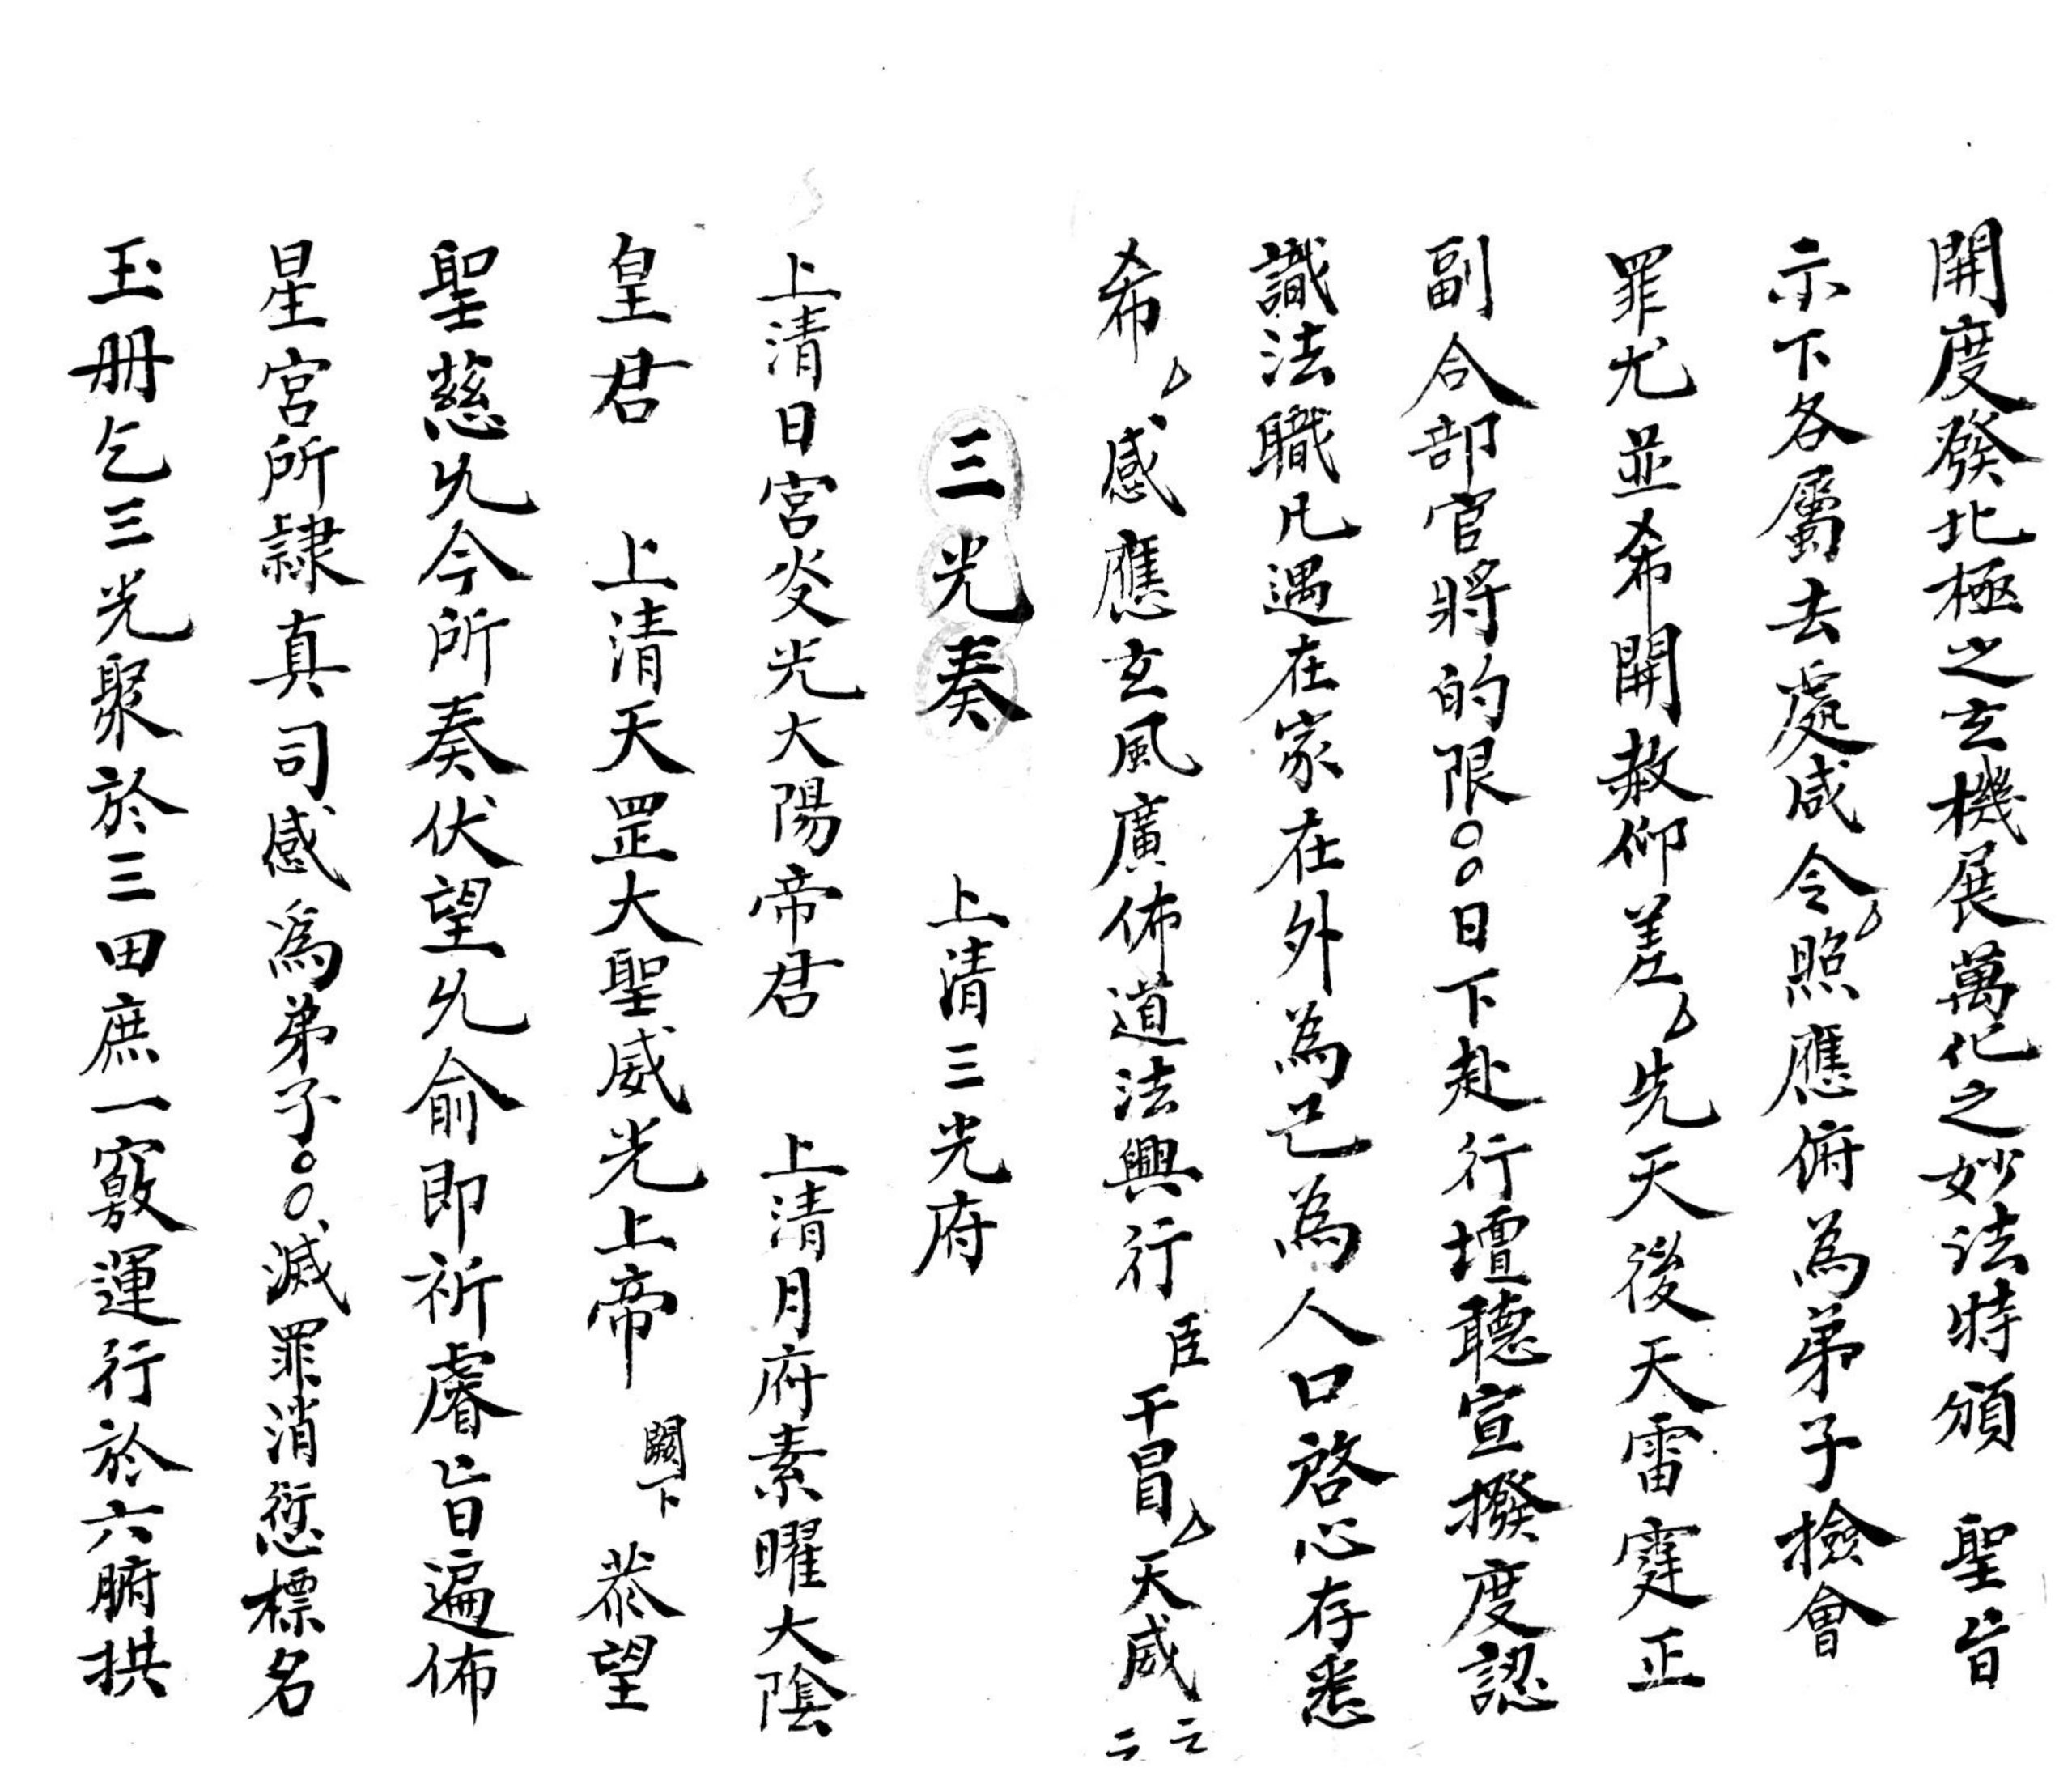 開度發北極之玄機展萬化之妙法特頒 聖旨
示下各屬去處咸令照應俯為弟子撿會
罪尤並希開赦仰差先天後天雷霆正
副合部官將的限〇〇日下赴行壇聽宣撥度認
識法職凡遇在家在外為己為人口啓心存悉
希感應玄風廣佈道法興行 臣干冒天威 云云
三光奏 上清三光府
上清日宮炎光大陽帝君 上清月府素曜大陰
皇君 上清天罡大聖威光上帝 闕下 恭望
聖慈允今所奏伏望允俞即祈睿旨遍佈
星宮所隷真司感為弟子〇〇滅罪消愆標名
玉册乞三光聚於三田庶一竅運行於六腑拱